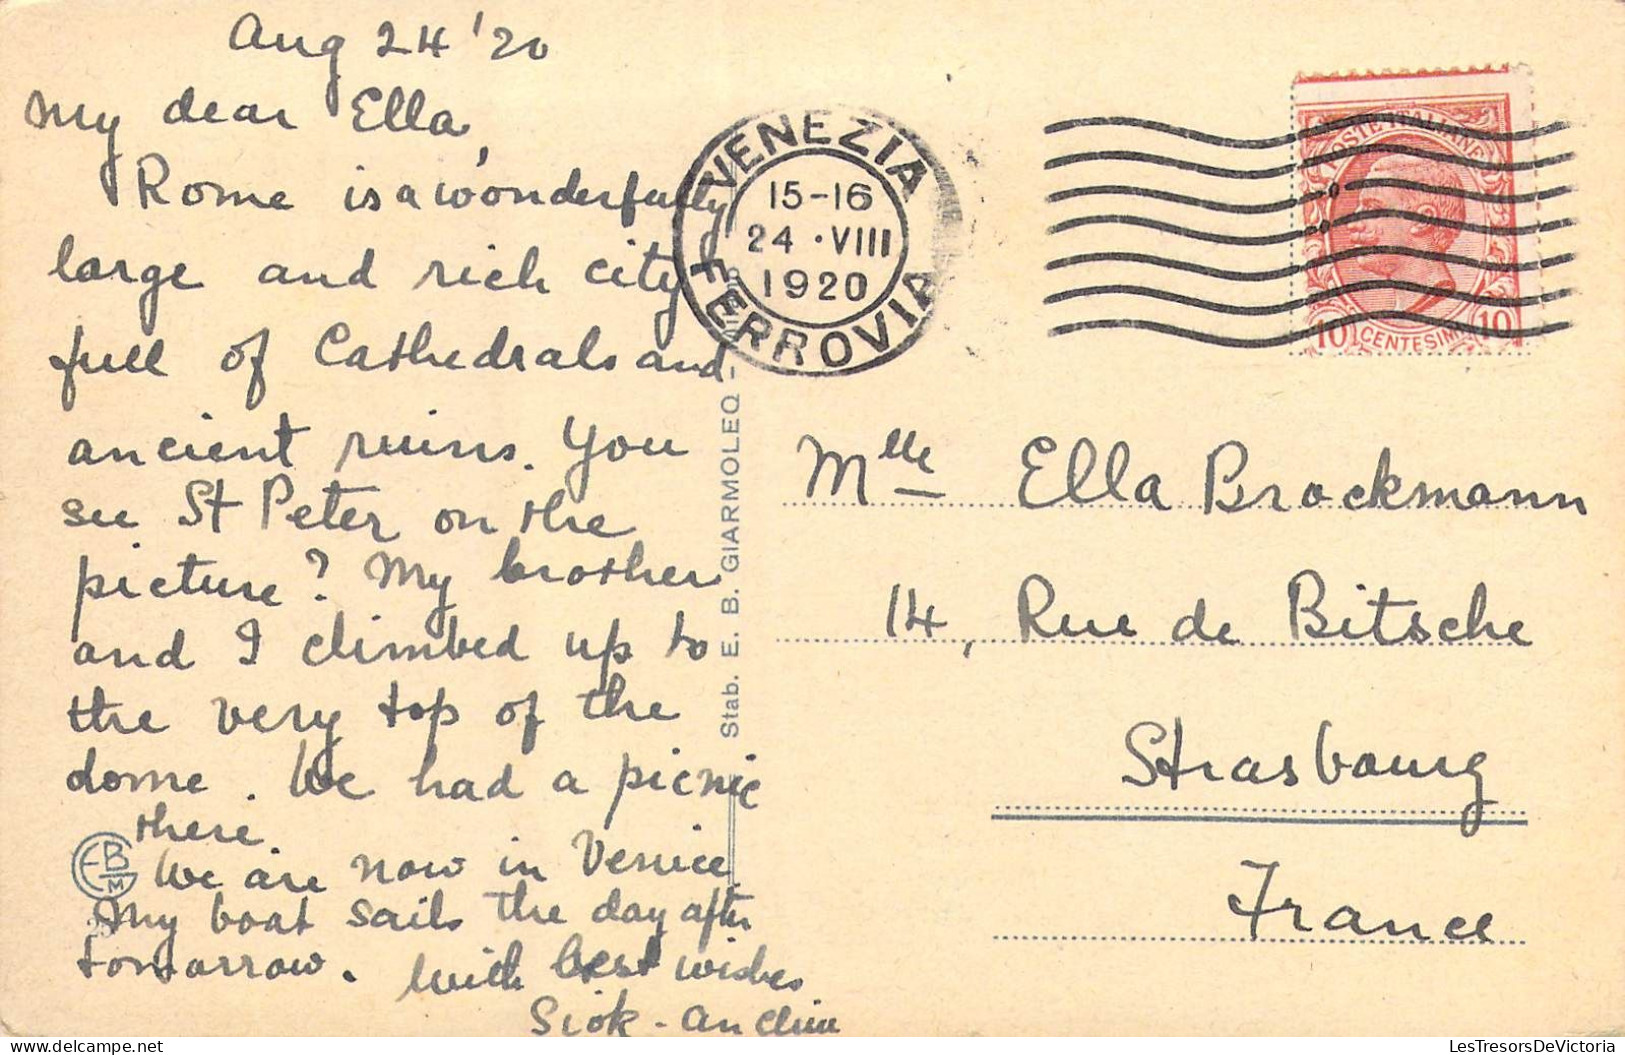 Aug 24 '20
My dear Ella,
Rome is a wonderfully
large and rich city
full of Cathedrals and
ancient ruins. You
see St Peter on the
picture? My brother
and I climbed up to
the very top of the
dome. We had a picnic
there.
We are now in Venice
My boat sails the day after
tomorrow. With best wishes
Siok-an
VENEZIA
15-16
24 · VIII
1920
FERROVIA
POSTE ITALIANE
10 CENTESIMI 10
Stab. E. B. GIARMOLEO -
EBM
Mlle Ella Brockmann
14, Rue de Bitsche
Strasbourg
France
LesTresorsDeVictoria